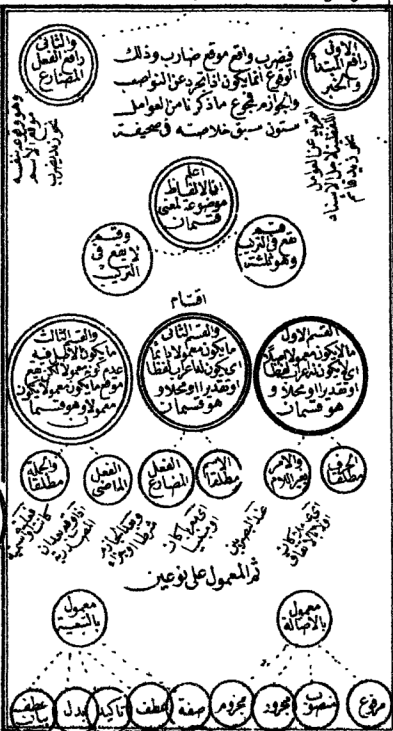 الاول
رافع المبتدأ
والخبر
والثانى
رافع الفعل
المضارع
فيضرب واقع موقع ضارب وذلك
الوقوع انما يكون اذا تجرد عن النواصب
والجوازم فمجموع ما ذكرنا من العوامل
ستون سبق خلاصته فى صحيفة
نحو زيد قائم
وهو وقوعه بنفسه
موقع الاسم
نحو زيد يضرب
اعلم
ان الالفاظ
موضوعة لمعنى
قسمان
قسم
يقع فى التركيب
وهو ثلثة
وقسم
لا يقع فى
التركيب
اقسام
القسم الاول
ما لا يكون معمولا اصلا
اى لا يكون له اعراب لفظا
او تقديرا او محلا و
هو قسمان
والقسم الثانى
ما يكون معمولا دائما
اى يكون له اعراب لفظا
او تقديرا او محلا و
هو قسمان
والقسم الثالث
ما يكون الاصل فيه
موقع ما يكون معمولا يكون
معمولا وهو قسمان
الحرف
مطلقا
والامر
بغير اللام
الاسم
مطلقا
الفعل
المضارع
الفعل
الماضى
والجملة
مطلقا
عند البصريين
ثم المعمول على نوعين
معمول
بالاصالة
معمول
بالتبعية
مرفوع
منصوب
مجرور
مجزوم
صفة
عطف
تأكيد
بدل
عطف
بيان